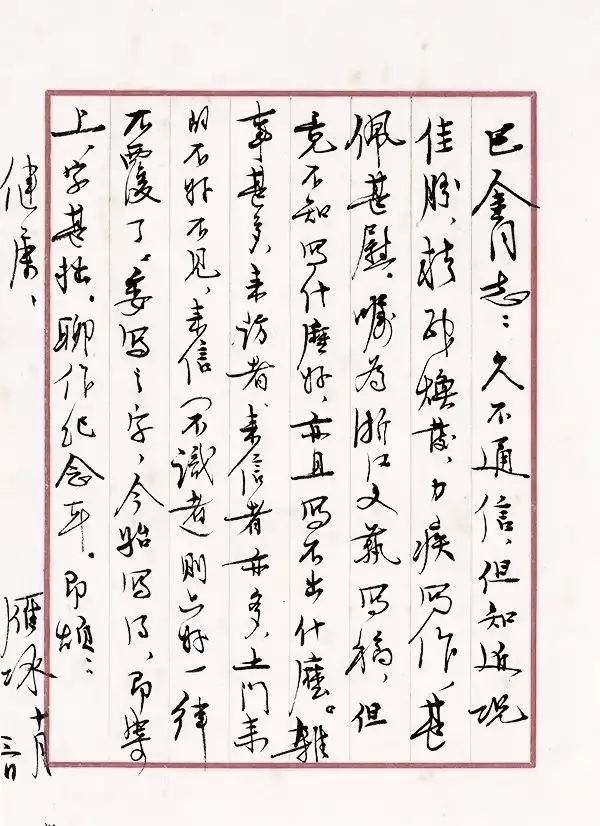 巴金同志：久不通信，但知近况
佳胜，精神焕发，力疾写作，甚
佩甚慰。嘱为浙江文艺写稿，但
竟不知写什麽好，亦且写不出什麽。雜
事甚多，来访者、来信者亦多，上门来
的不好不见，来信（不識者）则只好一律
不覆了。委写之字，今始写得，即寄
上，字甚拙，聊作纪念耳。即颂：
健康、
雁冰 十月
三日